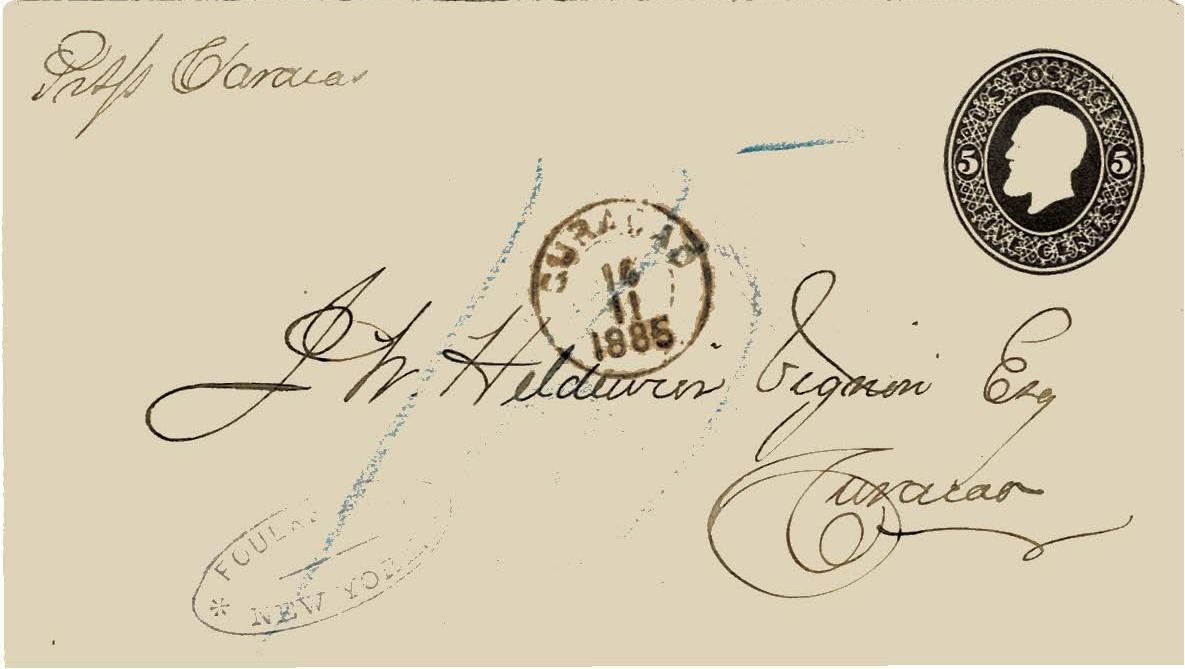 Pr S/s Caracas
U.S. POSTAGE
5 5
FIVE CENTS
CURAÇAO
16
11
1885
J W Heldewier Vignon Esq
Curacao
FOUL
* NEW YOR